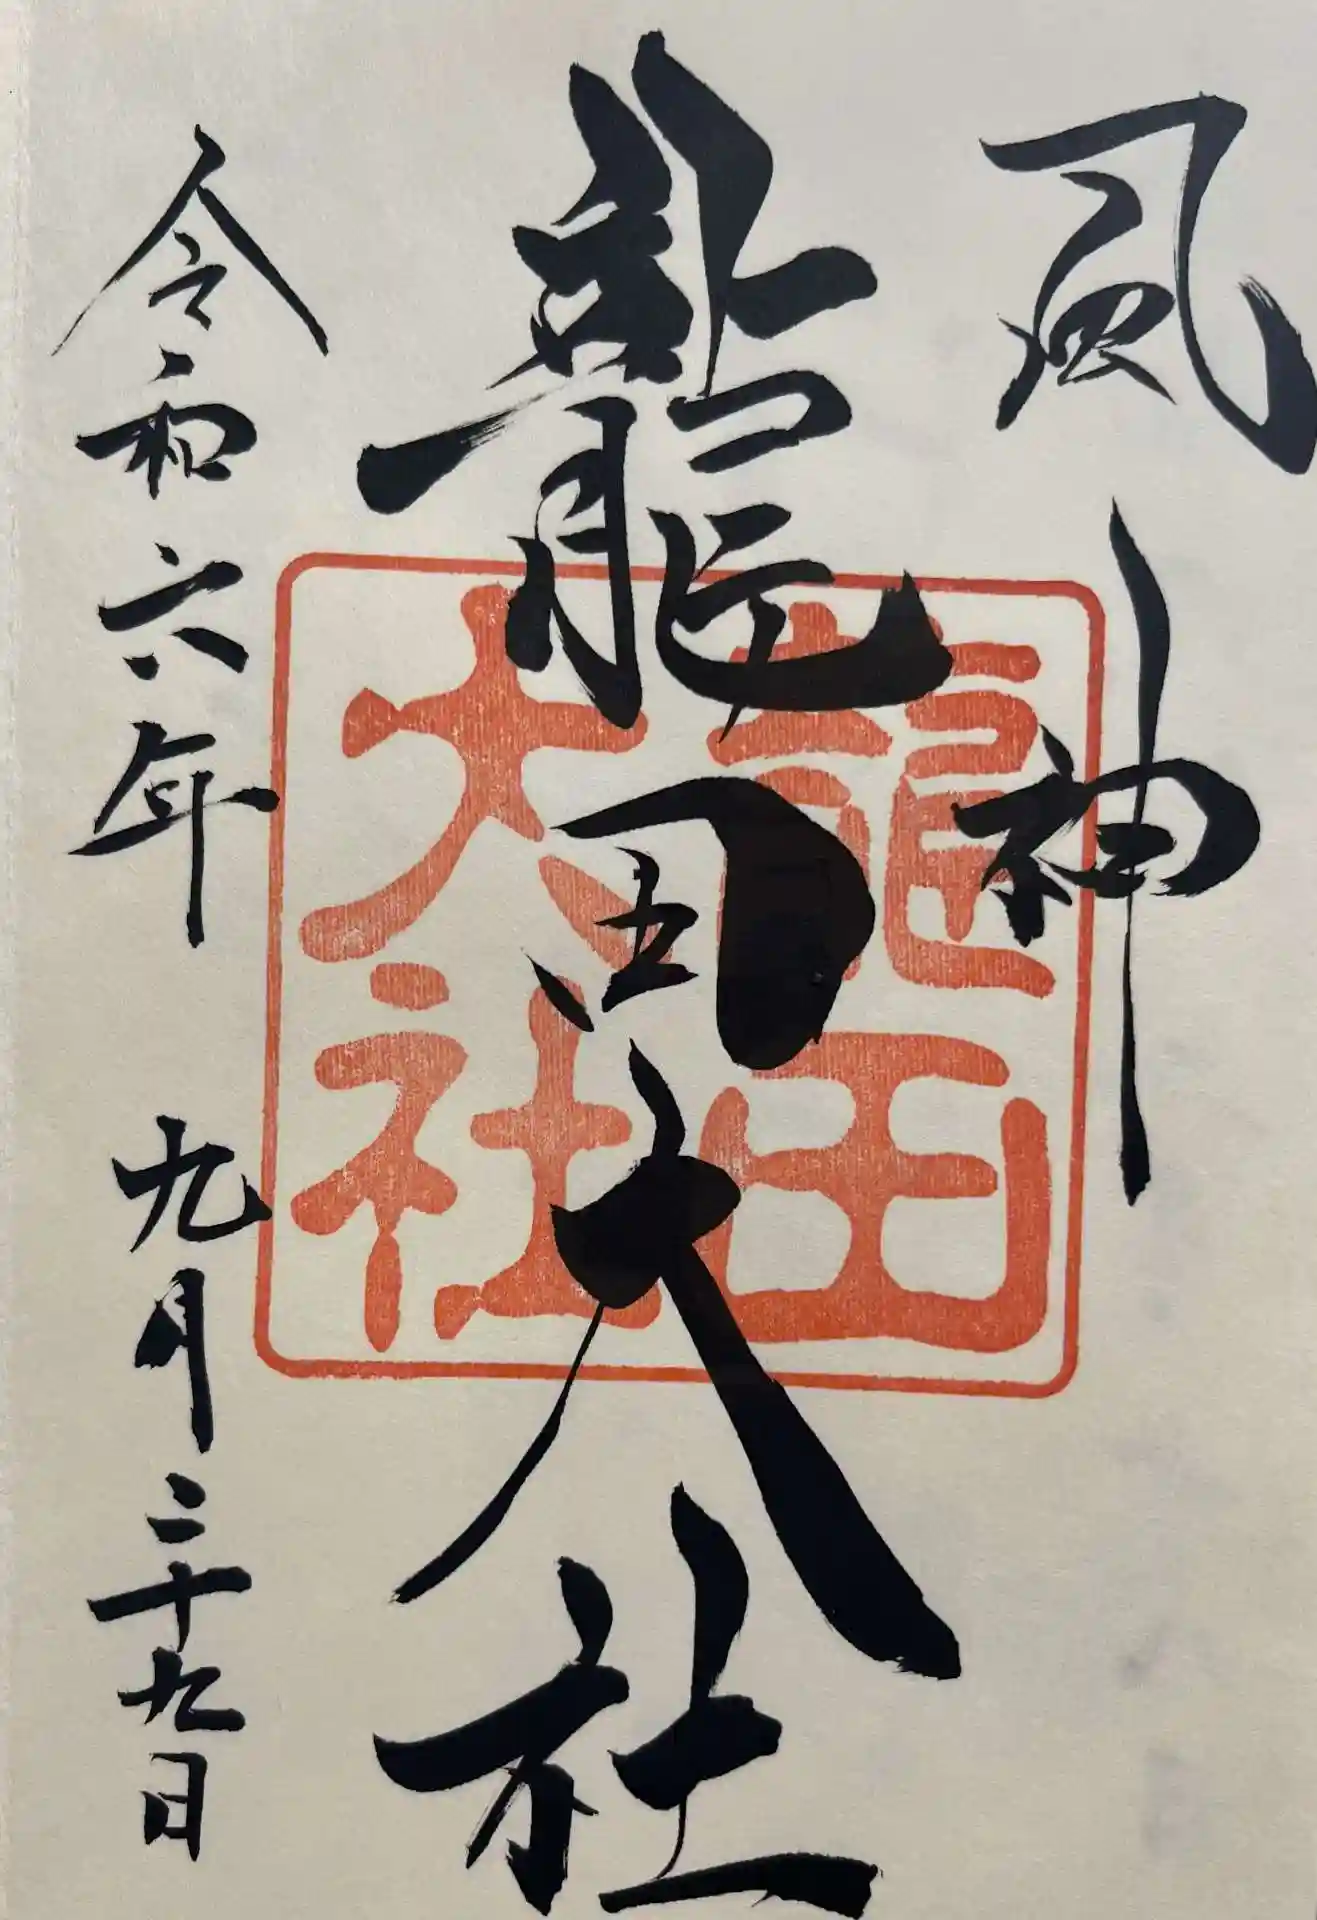 風神
龍田大社
龍田
大社
令和六年 九月二十九日